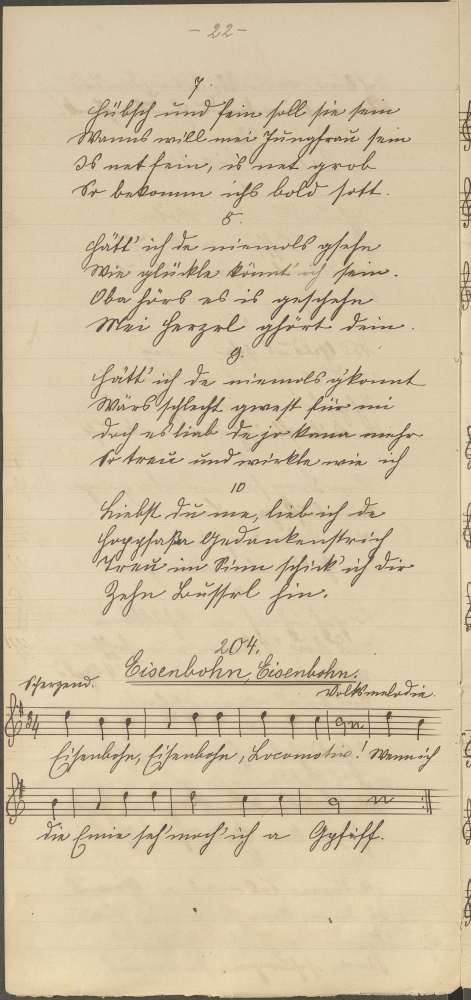 - 22 -
7.
Hübsch und fein soll sie sein
Wanns will mei Jungfrau sein
Is net fein, is net grob
So bekomm ichs bold sott.
8.
Hätt' ich de niemols gsehn
Wie glückle könnt' ich sein.
Oba hörs es is geschehn
Mei Herzerl ghört dein.
9.
Hätt' ich de niemols g'konnt
Wärs schlecht gwest für mi
Doch es liab de jo kana mehr
So treu und wirkle wie ich
10
Liebst du me, lieb ich de
Hoppsaßa Gedankenstrich
Treu im Sinn schick' ich dir
Zehn Busserl hin.
204.
Eisenbohn, Eisenbohn.
Scherzend.
Volksmelodie.
3/4
Eisenbohn, Eisenbohn, Locomotiv! Wenn ich
die Emie seh' moch' ich a Gpfiff.